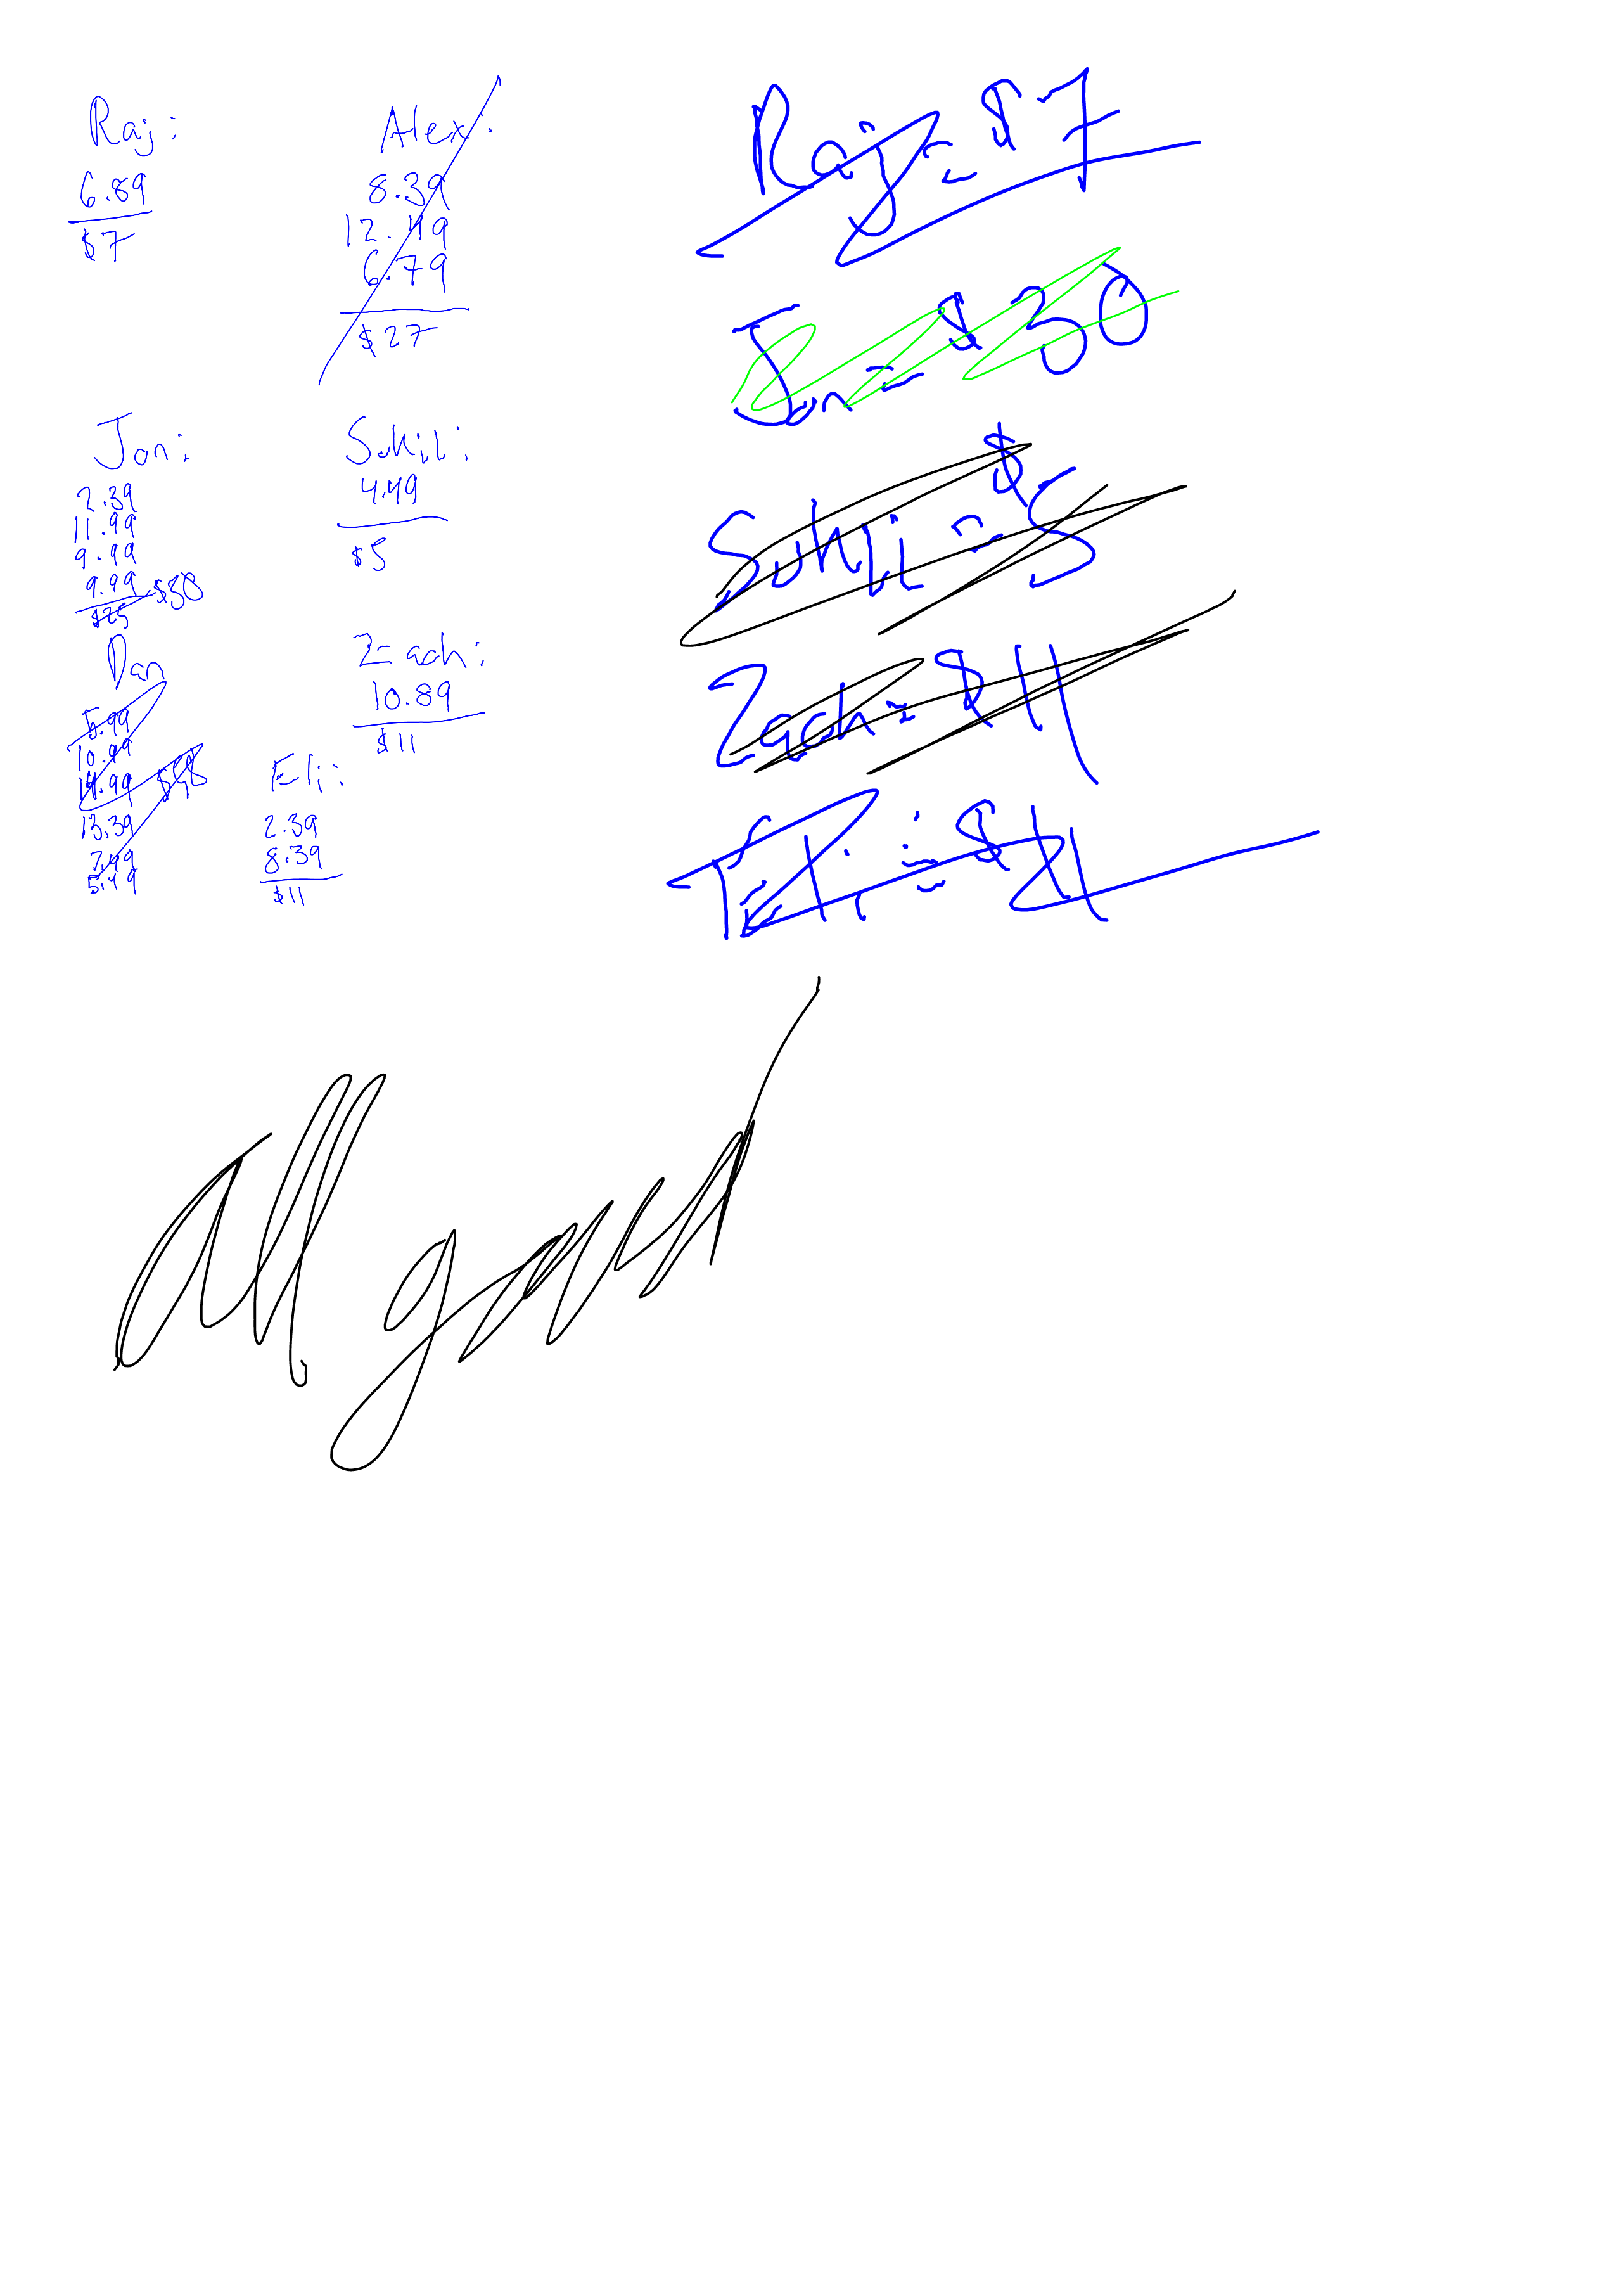 Raj:
6.89
$7
Alex:
8.39
12.49
6.79
$27
Jon:
2.39
11.99
9.99
9.99
$25 $30
Sukil:
4.49
$5
Dan
5.99
10.99
14.99
13.39
7.49
5.49
Zach:
10.89
$11
Eli:
2.39
8.39
$11
Raj = $7
Jon = $30
Sukil = $5
Zach = $11
Eli = $11
All good